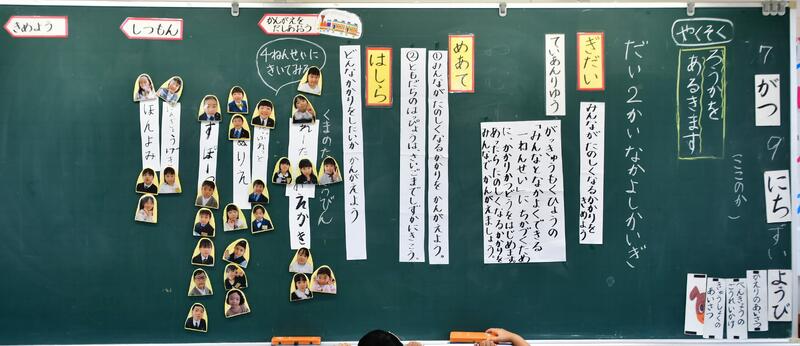 7がつ9にちすいようび
(ここのか)
やくそく
ろうかを
あるきます
ひえりのあいさつ
べんきょうの
ごうれいかけ
きゅうしょくの
あいさつ
だい2かいなかよしかいぎ
ぎだい
みんながたのしくなるかかりを
きめよう
ていあんりゆう
がっきゅうもくひょうの
「みんなとなかよくできる
一ねんせい」にちかづくため
に、かかりかつどうをはじめます。
あったらたのしくなるかかりを
みんなでかんがえましょう。
めあて
①みんながたのしくなるかかりをかんがえよう。
②ともだちのはっぴょうは、さいごまでしずかにきこう。
はしら
どんなかかりをしたいかかんがえよう
かんがえを
だしあおう
しつもん
きめよう
4ねんせいに
きいてみる
ほんよみ